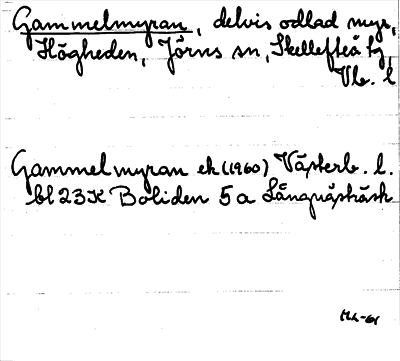 Gammelmyran, delvis odlad myr,
Högheden, Jörns sn, Skellefteå tg,
Vb. l
Gammelmyran ek (1960) Västerb. l.
bl 23K Boliden 5a Långnästräsk